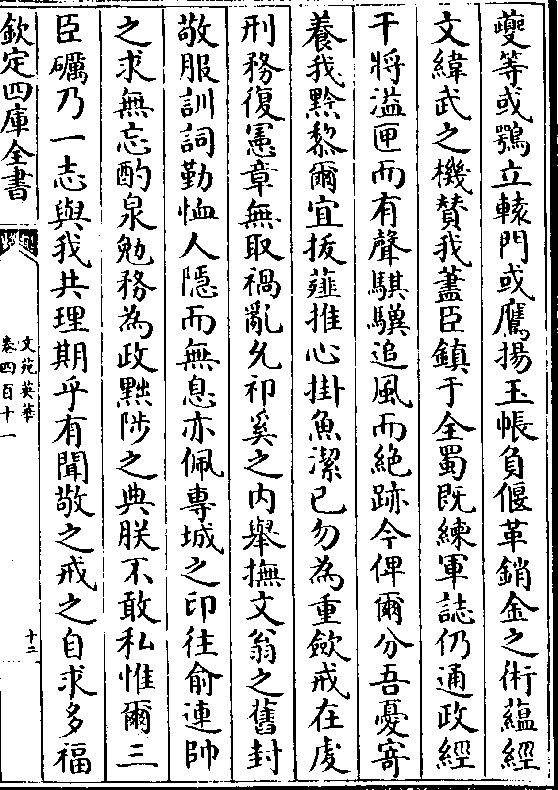 夔等或鶚立轅門或鷹揚玉帳負偃革銷金之術藴經
文緯武之機賛我藎臣鎮于全蜀既練軍誌仍通政經
干將溢匣而有聲騏驥追風而絶跡今俾爾分吾憂寄
養我黔黎爾宜拔薤推心掛魚潔已勿為重斂戒在䖏
刑務復憲章無取禍亂允祁奚之内舉撫文翁之舊封
敬服訓詞勤恤人隱而無息亦佩專城之印往俞連帥
之求無忘酌泉勉務為政黜陟之典朕不敢私惟爾三
臣礪乃一志與我共理期乎有聞敬之戒之自求多福
欽定四庫全書
文苑英華
卷四百十一
十二